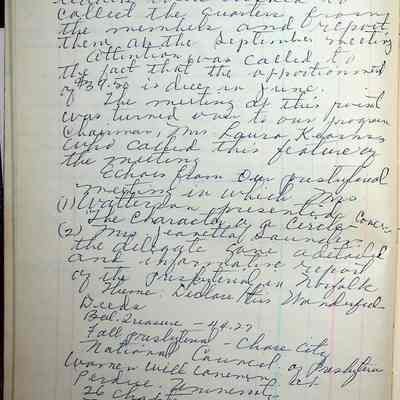 collect the quarters from
the members and report
them at the September meeting
Attention was called to
the fact that the apportionment
of $39.50 is due in June.
The meeting at this point
was turned over to our program
Chairman, Mrs. Laura
who called this feature of
the meeting
Echoes from Our Presbyterial
meeting in which Mrs
(1) Watterson presented
The Character of a Circle
(2) Mrs Jeanetta Saunders
the delegate gave a detailed
and informative report
of the Presbyterial in Norfolk
Theme: Declare His Wonderful
Deeds
Bal. Treasure - 44.27
Fall presbyterial - Chase City
National Council of Presbyterian
Women will convene at
Perdue
26